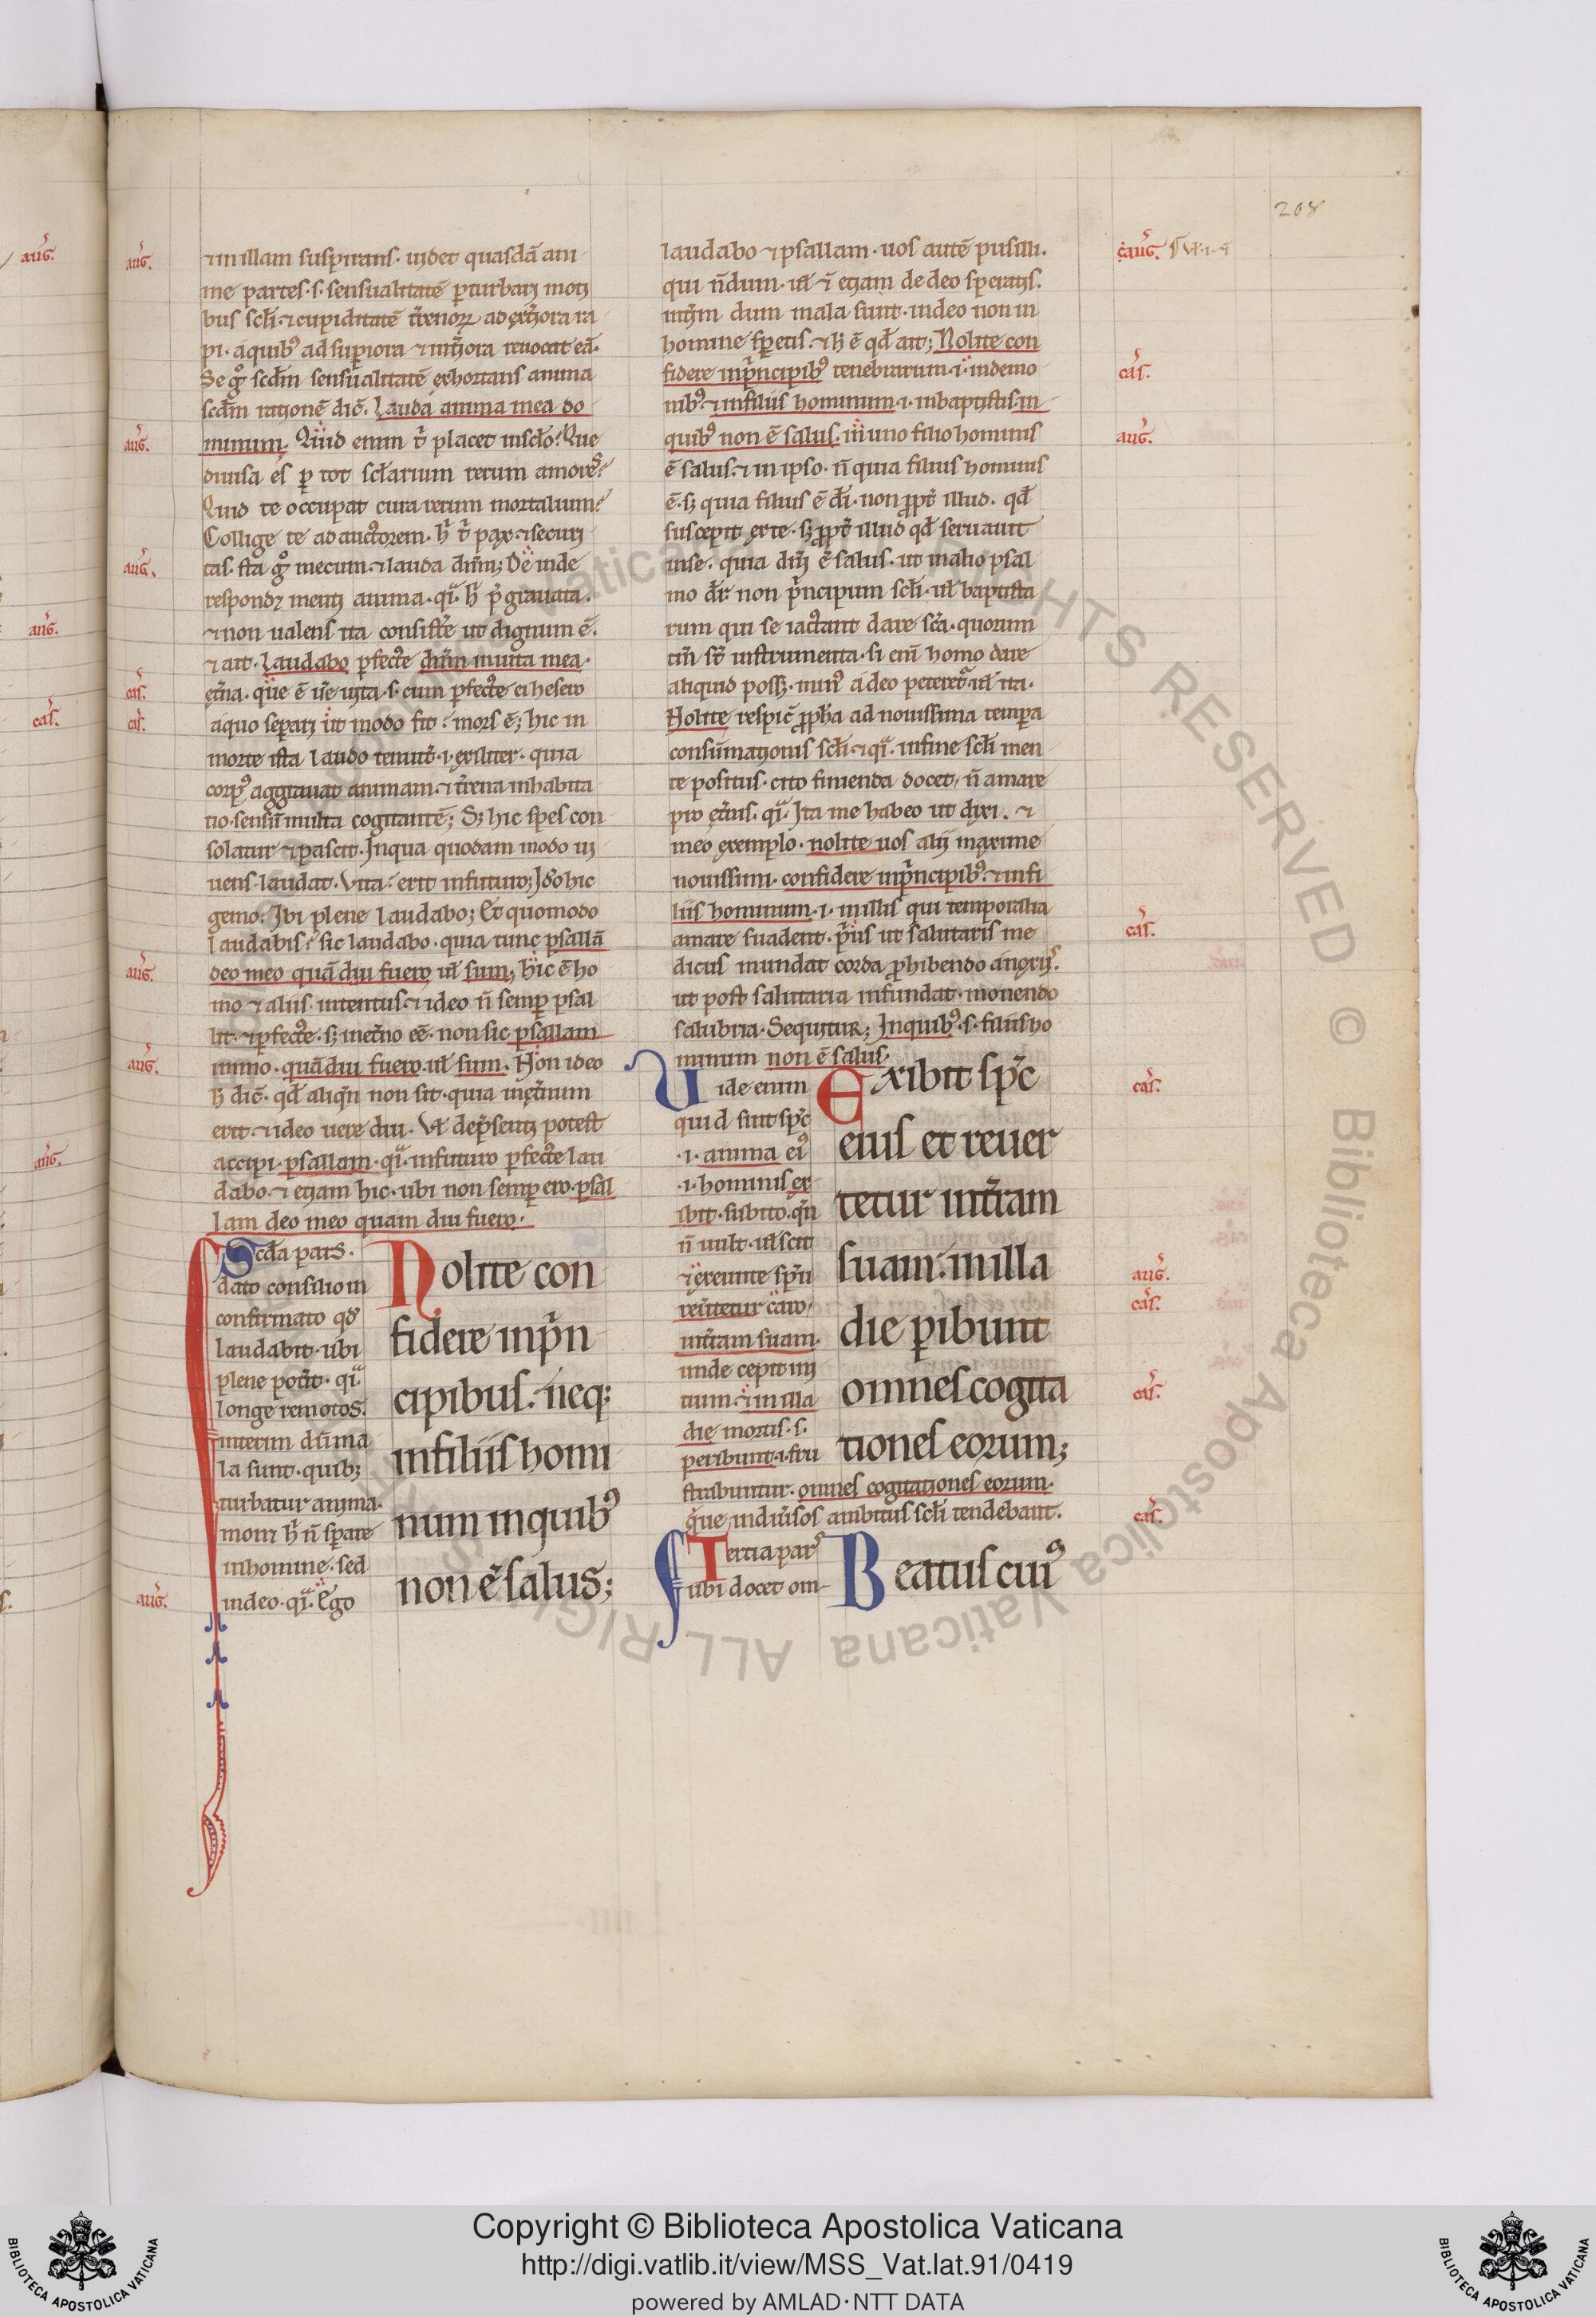 208
⁊ in illam suspirans. uidet quasdā ani
me partes .s. sensualitatē ꝑturbatꝫ motꝫ
pi. a quibꝰ ad supiora ⁊ intꝫiora reuocat eā.
Se gͦ scd̄m sensualitatē exhortans anima
scd̄m rationē dic̄. Lauda anima mea do
minum. Quid enim t̄ placet in sclo? Que
diuisa es p tot sclarium rerum amores?
Quid te occupat cura rerum mortalium?
Collige te ad auctorem. h̄ t̄ pax ⁊ securi
tas. sta gͦ mecum ⁊ lauda dūm; De inde
⁊ non ualens ita consiste ut dignum ē.
⁊ ait. Laudabo pfecte dūm in uita mea.
a quo separatꝫ ut modo sit: mors ē; hic in
morte ista laudo tenuit̄ .i. exiliter. quia
corpꝰ aggrauat animam ⁊ t̄rena inhabita
tio sensū multa cogitantē; Sꝫ hic spes con
solatur ⁊ pascit. In qua quodam modo ui
uens laudat. Vita: erit in futuro; Ido hic
gemo. Ibi plene laudabo; Et quomodo
laudabis? sic laudabo. quia tunc psallā
deo meo quādiu fuero ul sum; hic ē ho
mo ⁊ aliis intentus ⁊ ideo n̄ semp psal
lit ⁊ pfecte. sꝫ in et̄no eē. non sic psallam
immo. quādiu fuero ul sum. Non ideo
h̄ dic̄. qd̄ aliqn̄ non sit. quia in et̄num
erit ⁊ ideo uere diu. Vl de p̄sentꝫ potest
accipi. psallam. qi. in futuro pfecte lau
dabo. ⁊ etiam hic. ubi non semp ero. psal
lam deo meo quam diu fuero.
Scda pars.
dato consilio in
confirmato qd̄
laudabit. ubi
plene pot̄it. qi.
longe remotos.
interim dū ma
la sunt. quibꝫ
turbatur anima.
monꝫ h̄ n̄ sperare
in homine. sed
in deo. qi. Ego
Nolite con
fidere in p̄n
cipibus. neqꝫ
in filiis homi
num in quibꝰ
non ē salus;
laudabo ⁊ psallam. uos autē pusilli.
qui n̄dum. ul ī etiam de deo speratis.
int̄im dum mala sunt. in deo non in
homine speretis. ⁊ h̄ ē qd̄ ait; Nolite con
fidere in p̄ncipibꝰ tenebrarum .i. in demo
nibꝰ. ⁊ in filiis hominum .i. in baptistis. in
quibꝰ non ē salus. in uno filio hominis
ē salus. ⁊ in ipso. n̄ quia filius hominis
ē. sꝫ quia filius ē di. non ꝓpt̄ illud. qd̄
suscepit ex te. sꝫ ꝓpt̄ illud qd̄ seruauit
in se. quia dnī ē salus. ut in alio psal
mo dr̄. non p̄ncipum scli. ul baptista
rum qui se iactant dare sc̄a. quorum
tm̄ st̄ instrumenta. si eni homo dare
Nolite respic̄ ꝓpha ad nouissima tempa
consūmationis scli. ⁊ qi. in fine scli men
te positus. cito finienda docet, n̄ amare
pro et̄nis. qi. Ita me habeo ut dixi. ⁊
meo exemplo. nolite uos alii maxime
nouissimi. confidere in p̄ncipibꝰ. ⁊ in fi
liis hominum .i. in illis qui temporalia
amare suadent. p̄us ut salutaris me
dicus mundat corda ꝓhibendo a noxiis.
ut post salutaria infundat. monendo
salubria. Sequitur; In quibꝰ .s. filiis ho
minum non ē salus.
Vide enim
quid sint sp̄c
.i. anima eiꝰ
.i. hominis ex
ibit. subito. qn̄
n̄ uult. ul scit
⁊ exeunte sp̄u
reūtetur caro
in t̄ram suam.
unde cepit ini
tium. ⁊ in illa
die mortis .s.
peribunt .i. fru
strabuntur. omnes cogitationes eorum.
que in diuersos ambitus scli tendebant.
Exibit sp̄c
eius et reuer
tetur in t̄ram
suam: in illa
die pibunt
omnes cogita
tiones eorum;
Tertia pars
ubi docet om-
Beatus cuiꝰ
aug.
aug.
aug.
cas.
cas.
aug.
aug.
aug.
aug.
cas.
aug.
cas.
cas.
aug.
cas.
cas.
cas.
aug.
aug.
cas.
aug.
Copyright © Biblioteca Apostolica Vaticana
http://digi.vatlib.it/view/MSS_Vat.lat.91/0419
powered by AMLAD·NTT DATA
BIBLIOTECA APOSTOLICA VATICANA
BIBLIOTECA APOSTOLICA VATICANA